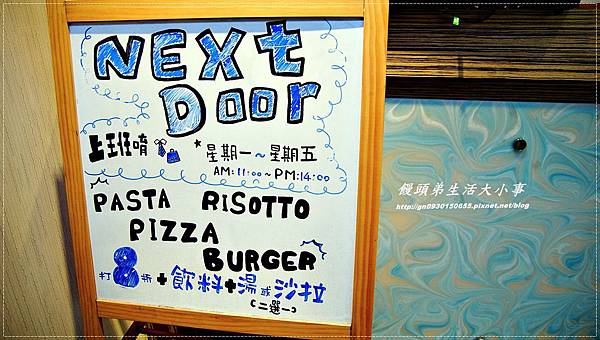 NEXt
Door
上班唷 星期一~星期五
AM:11:00~PM:14:00
PASTA RISOTTO
PIZZA
BURGER
打8折+飲料+湯或沙拉
(二選一)
饅頭弟生活大小事
http://gn0930150655.pixnet.net/blog